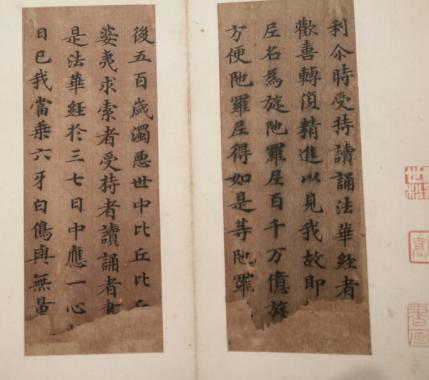 利尒時受持讀誦法華經者
歡喜轉復精進以見我故即
尼名為旋陁羅尼百千万億旋
方便陁羅尼得如是等陁羅
後五百歲濁惡世中比丘比
婆夷求索者受持者讀誦者
是法華經於三七日中應一心
日已我當乘六牙白象與無量